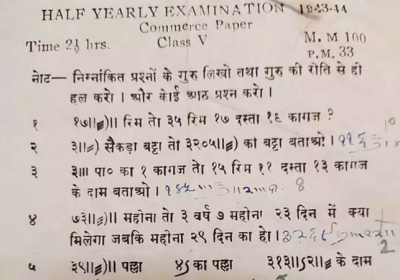 HALF YEARLY EXAMINATION 1943-44
Commerce Paper
Time 2½ hrs. Class V M. M 100
P.M. 33
नोट— निम्नांकित प्रश्नों के गुरु लिखो तथा गुरु की रीति से ही
हल करो । और कोई आठ प्रश्न करो ।
१ १७॥≡)॥ रिम तो ३५ रिम १७ दस्ता १६ कागज ?
२ ३॥=) सैकड़ा बट्टा तो ३२०५॥=) का बट्टा बताओ ।
३ ३॥। पा० का १ कागज तो १५ रिम ११ दस्ता १३ कागज
के दाम बताओ ।
४ ७३॥=)॥ महीना तो ३ वर्ष ७ महीना २३ दिन में क्या
मिलेगा जबकि महीना २९ दिन का हो ।
५ ३९॥=)॥ पल्ला का पल्ला के दाम